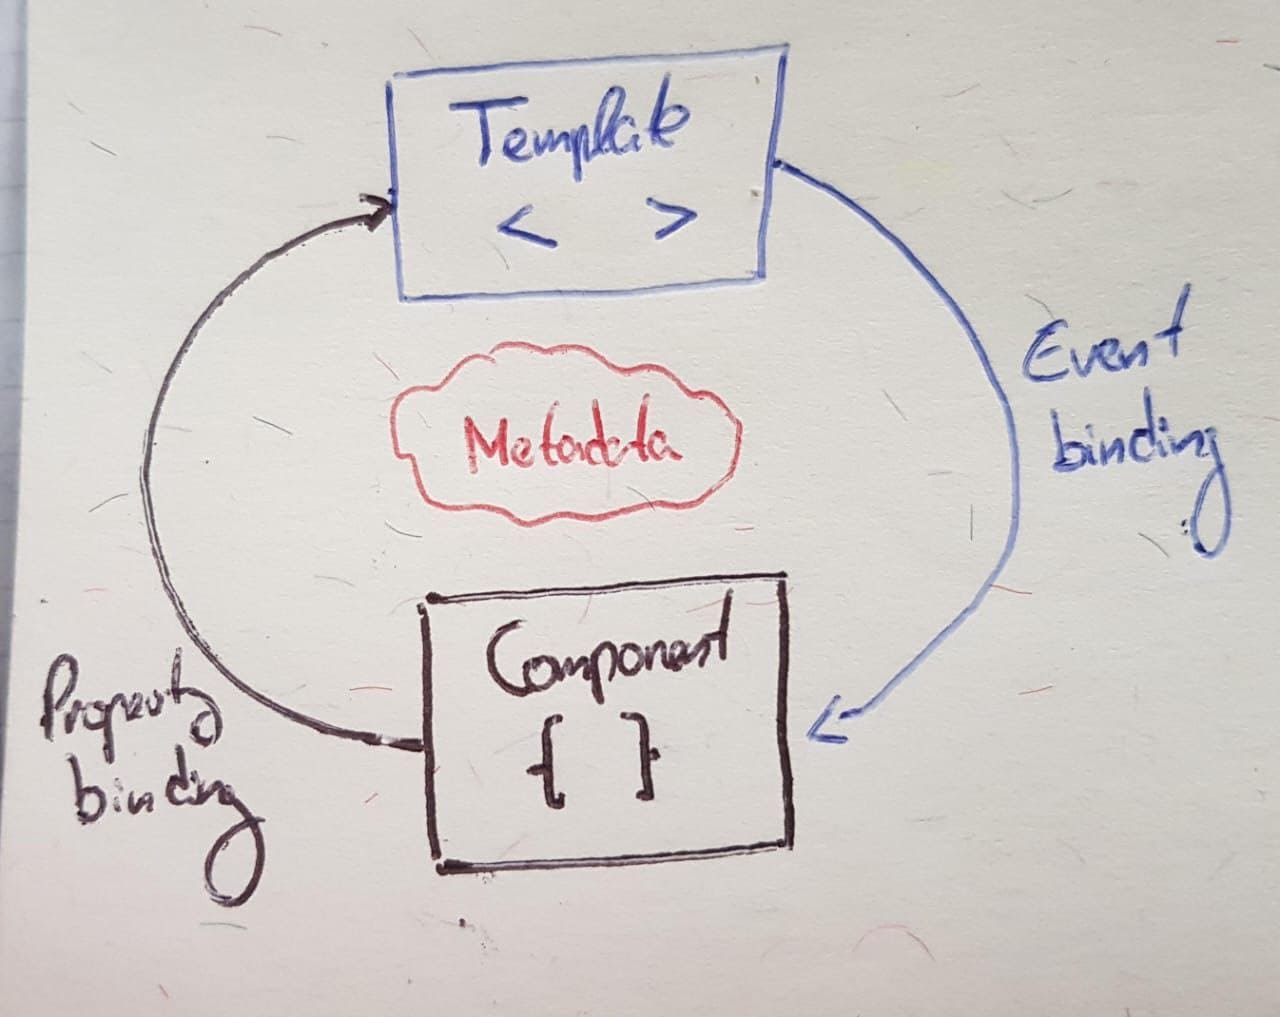 Template
< >
Event
binding
Metadata
Component
{ }
Property
binding